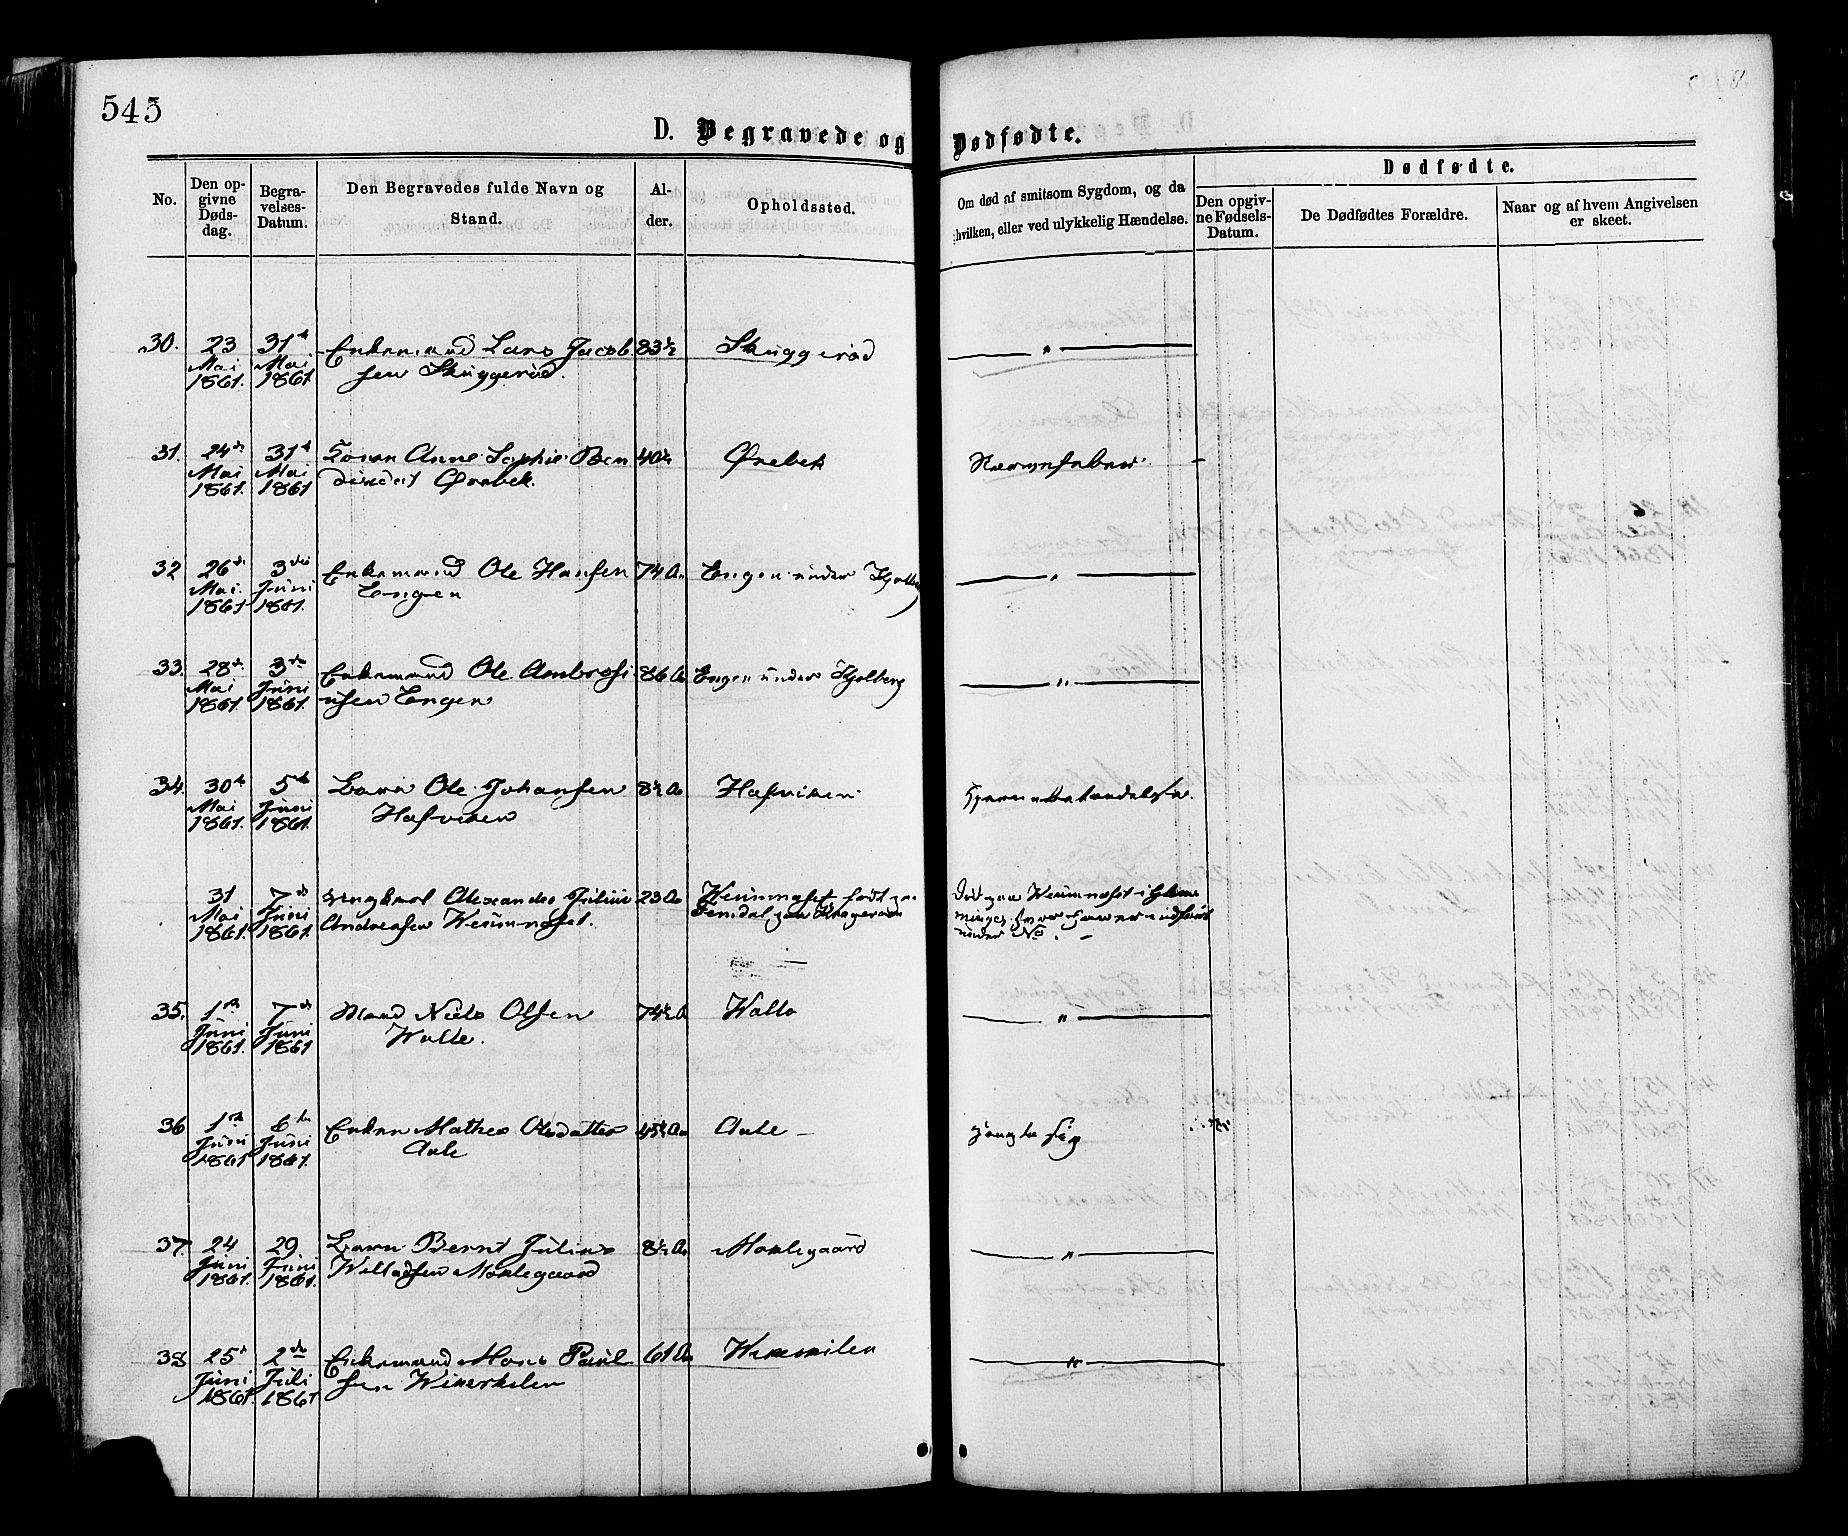 545
D. Begravede og Dødfødte.
No.
Den opgivne Dødsdag.
Begravelses-Datum.
Den Begravedes fulde Navn og Stand.
Alder.
Opholdssted.
Om død af smitsom Sygdom, og da hvilken, eller ved ulykkelig Hændelse.
Dødfødte.
Den opgivne Fødsels-Datum.
De Dødfødtes Forældre.
Naar og af hvem Angivelsen er skeet.
30. 23 Mai 1861. 31te Mai 1861. Enkemand Lars Jacob 83½ Skuggerød "
sen Skuggerød.
31. 24de Mai 1861. 31te Mai 1861 Anne Sophie Ben 40 Ørebek Nervefeber.
dixdat Ørebek.
32 26de Mai 1861 3die Juni 1861. Enkemand Ole Hansen 74 A. Engen under Kjølberg "
Engen
33. 28de Mai 1861. 3die Juni 1861. Enkemand Ole Ambrosi 86 A. Engen under Kjølberg "
usen Engen
34. 30te Mai 1861. 5te Juni 1861. Barn Ole Johansen 8½ A. Hafviken
Hafviken
31 Mai 1861. 7de Juni 1861. Ungkarl Alexander Julius 23 A. født
Andreasen
under No.
35. 1ste Juni 1861. 7de Juni 1861 Mand Niels Olsen 74½ A Walle "
Walle.
36 1ste Juni 1861 6te Juni 1861. Enken Mathea Olsdatter 45½ A. Aale
Aale
37. 24 Juni 1861. 29 Juni 1861. Barn Bernt Julius 8½ A. Moklegaard "
Willadsen Moklegaard
38 25de Juni 1861. 2den Juli 1861 Enkemand Hans Paul 61 A. Wikerkilen "
sen Wikerkilen